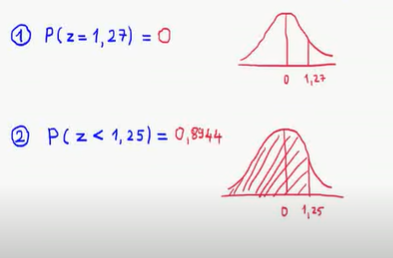 ① P(z=1,27) = 0
0 1,27
② P(z < 1,25) = 0,8944
0 1,25